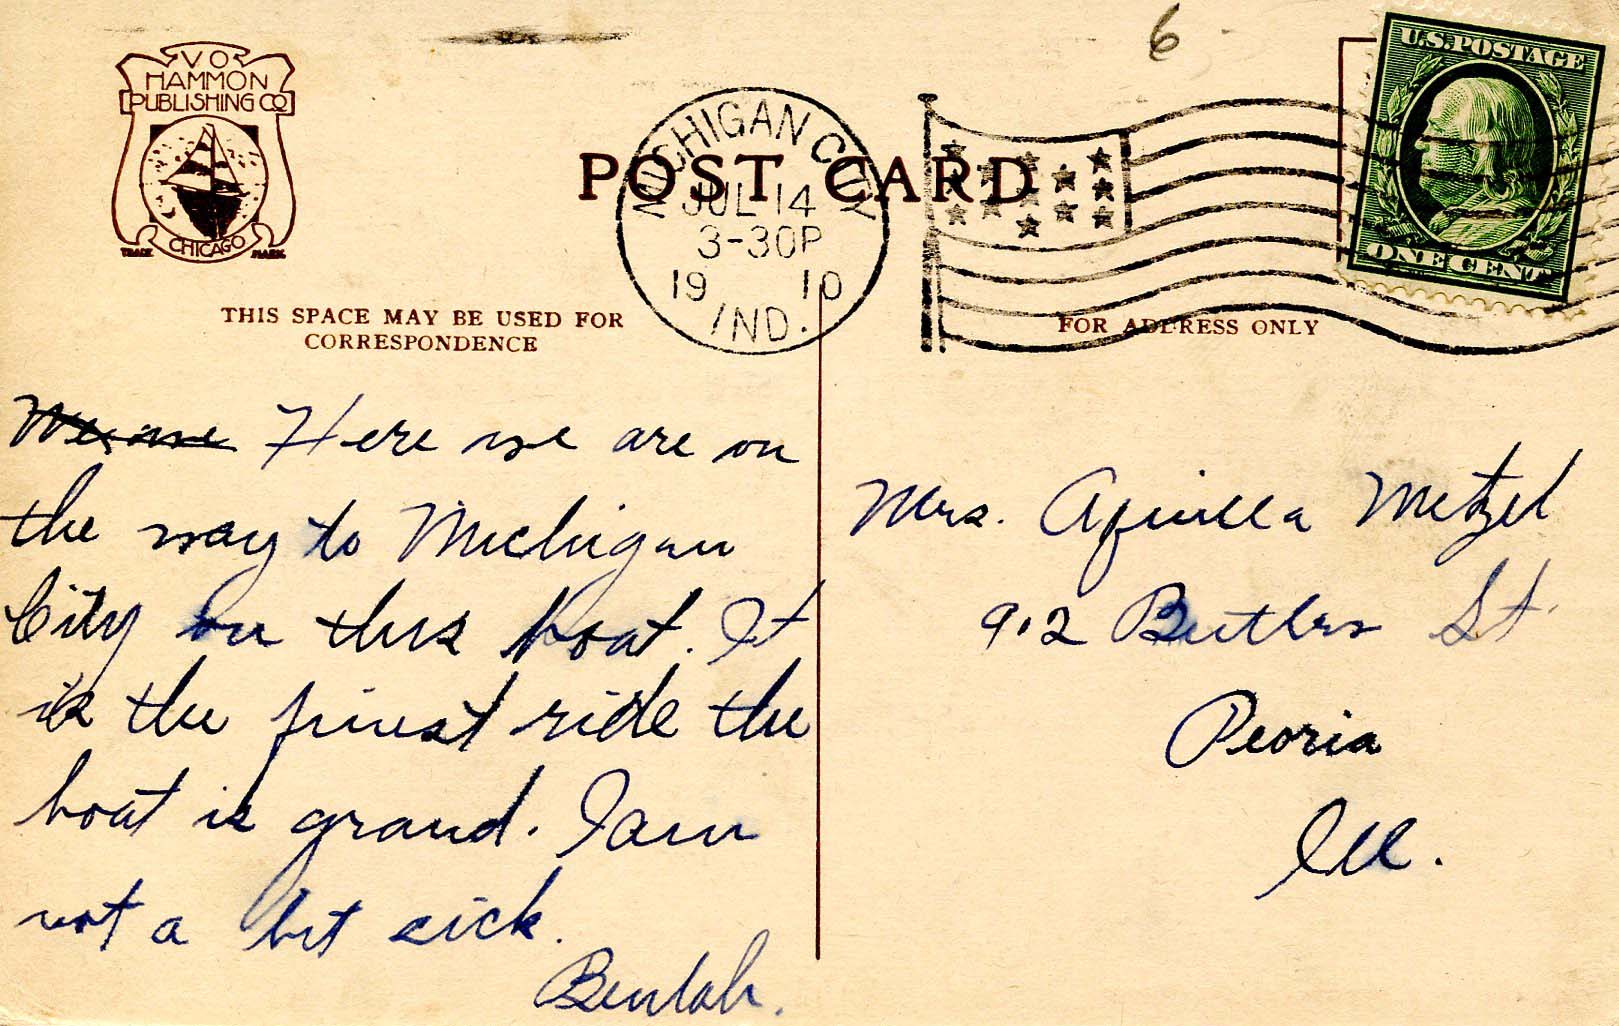 V O
HAMMON
PUBLISHING CO
CHICAGO
TRADE MARK
6
U.S. POSTAGE
ONE CENT
MICHIGAN CITY
JUL 14
3-30P
1910
IND.
POST CARD
THIS SPACE MAY BE USED FOR
CORRESPONDENCE
FOR ADDRESS ONLY
Here we are on
the way to Michigan
City on this boat. It
is the finest ride the
boat is grand. I am
not a bit sick.
Beulah.
Mrs. Aquilla Metzel
912 Butler St
Peoria
Ill.